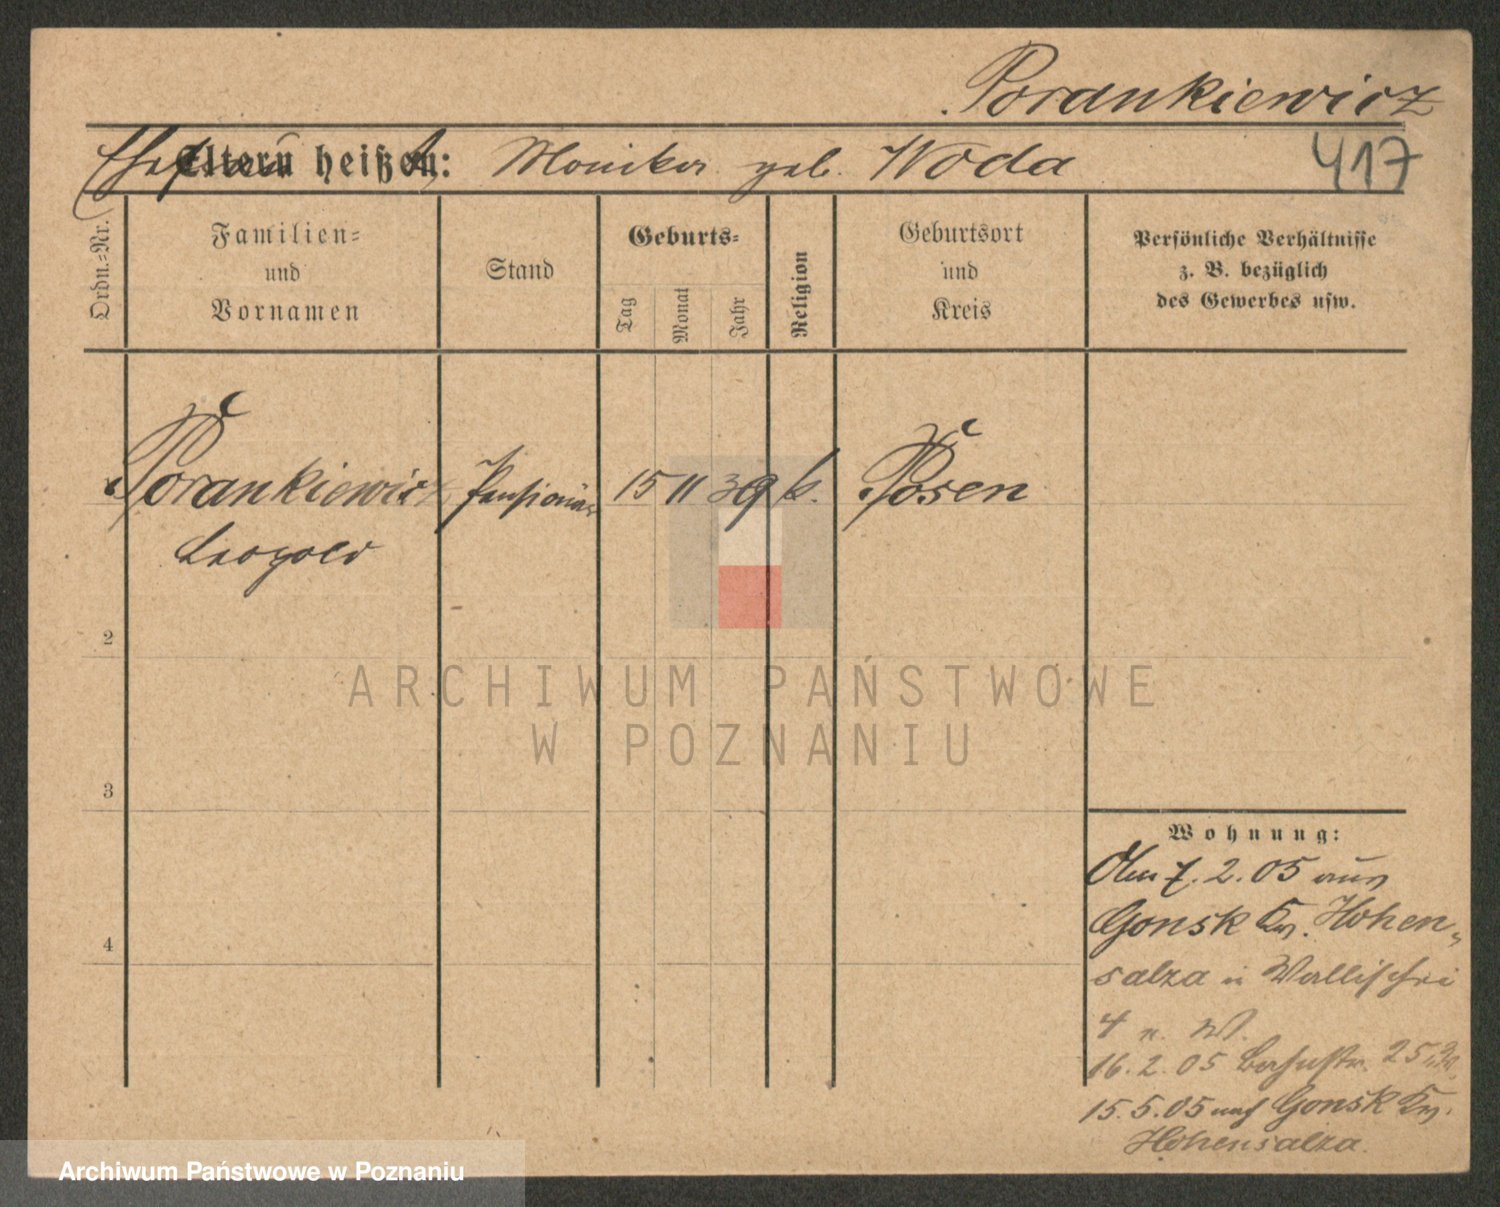 Porankiewicz
Eltern heißen: Monika geb. Woda
417
Ordn.-Nr.
Familien-
und
Vornamen
Stand
Geburts-
Tag
Monat
Jahr
Religion
Geburtsort
und
Kreis
Persönliche Verhältnisse
z. B. bezüglich
des Gewerbes usw.
Porankiewicz Pensionär 15 11 39 k. Posen
Leopold
2
3
4
Wohnung:
7. 2. 05 aus
Gonsk Kr. Hohen-
salza in Wallischei
4 n. W.
16. 2. 05 25
15. 5. 05 nach Gonsk Kr.
Hohensalza.
ARCHIWUM PAŃSTWOWE
W POZNANIU
Archiwum Państwowe w Poznaniu